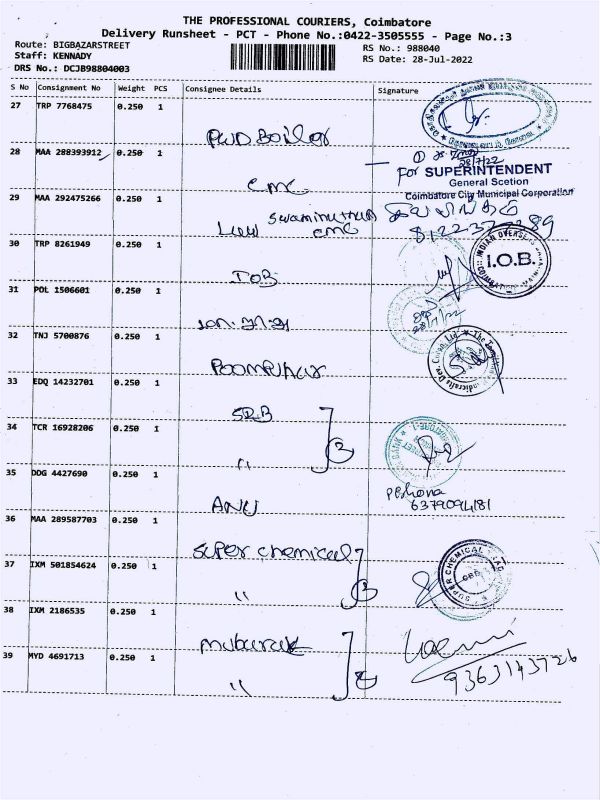 THE PROFESSIONAL COURIERS, Coimbatore
Delivery Runsheet - PCT - Phone No.:0422-3505555 - Page No.:3
Route: BIGBAZARSTREET
RS No.: 988040
Staff: KENNADY
RS Date: 28-Jul-2022
DRS No.: DCJB98804003
S No Consignment No Weight PCS Consignee Details Signature
27 TRP 7768475 0.250 1
PWD Boiler
28 MAA 288393912 0.250 1
28/7/22
For SUPERINTENDENT
General Scetion
Coimbatore City Municipal Corporation
CMC
29 MAA 292475266 0.250 1
Swaminathan
CMC
30 TRP 8261949 0.250 1
INDIAN OVERSEAS
I.O.B.
IOB
31 POL 1506601 0.250 1
28/7/22
32 TNJ 5700876 0.250 1
Poompuhar
33 EDQ 14232701 0.250 1
SRB
34 TCR 16928206 0.250 1
"
2
35 DDG 4427690 0.250 1
6379094181
ANU
36 MAA 289587703 0.250 1
Super chemical
37 IXM 501854624 0.250 1
SUPER CHEMICAL
"
38 IXM 2186535 0.250 1
mubarak
39 MYD 4691713 0.250 1
9363143726
"
2